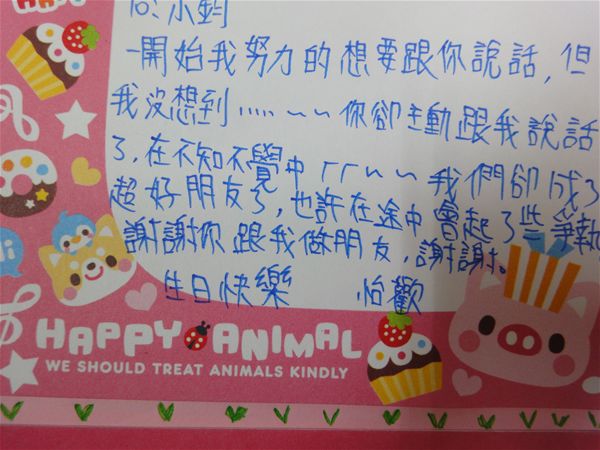 小鈞
一開始我努力的想要跟你說話,但
我沒想到.....~~你卻主動跟我說話
了,在不知不覺中ㄏㄏ~~我們卻成了
超好朋友了,也許在途中會起了些爭執
謝謝你跟我做朋友,謝謝。
生日快樂 怡歡
HAPPY ANIMAL
WE SHOULD TREAT ANIMALS KINDLY